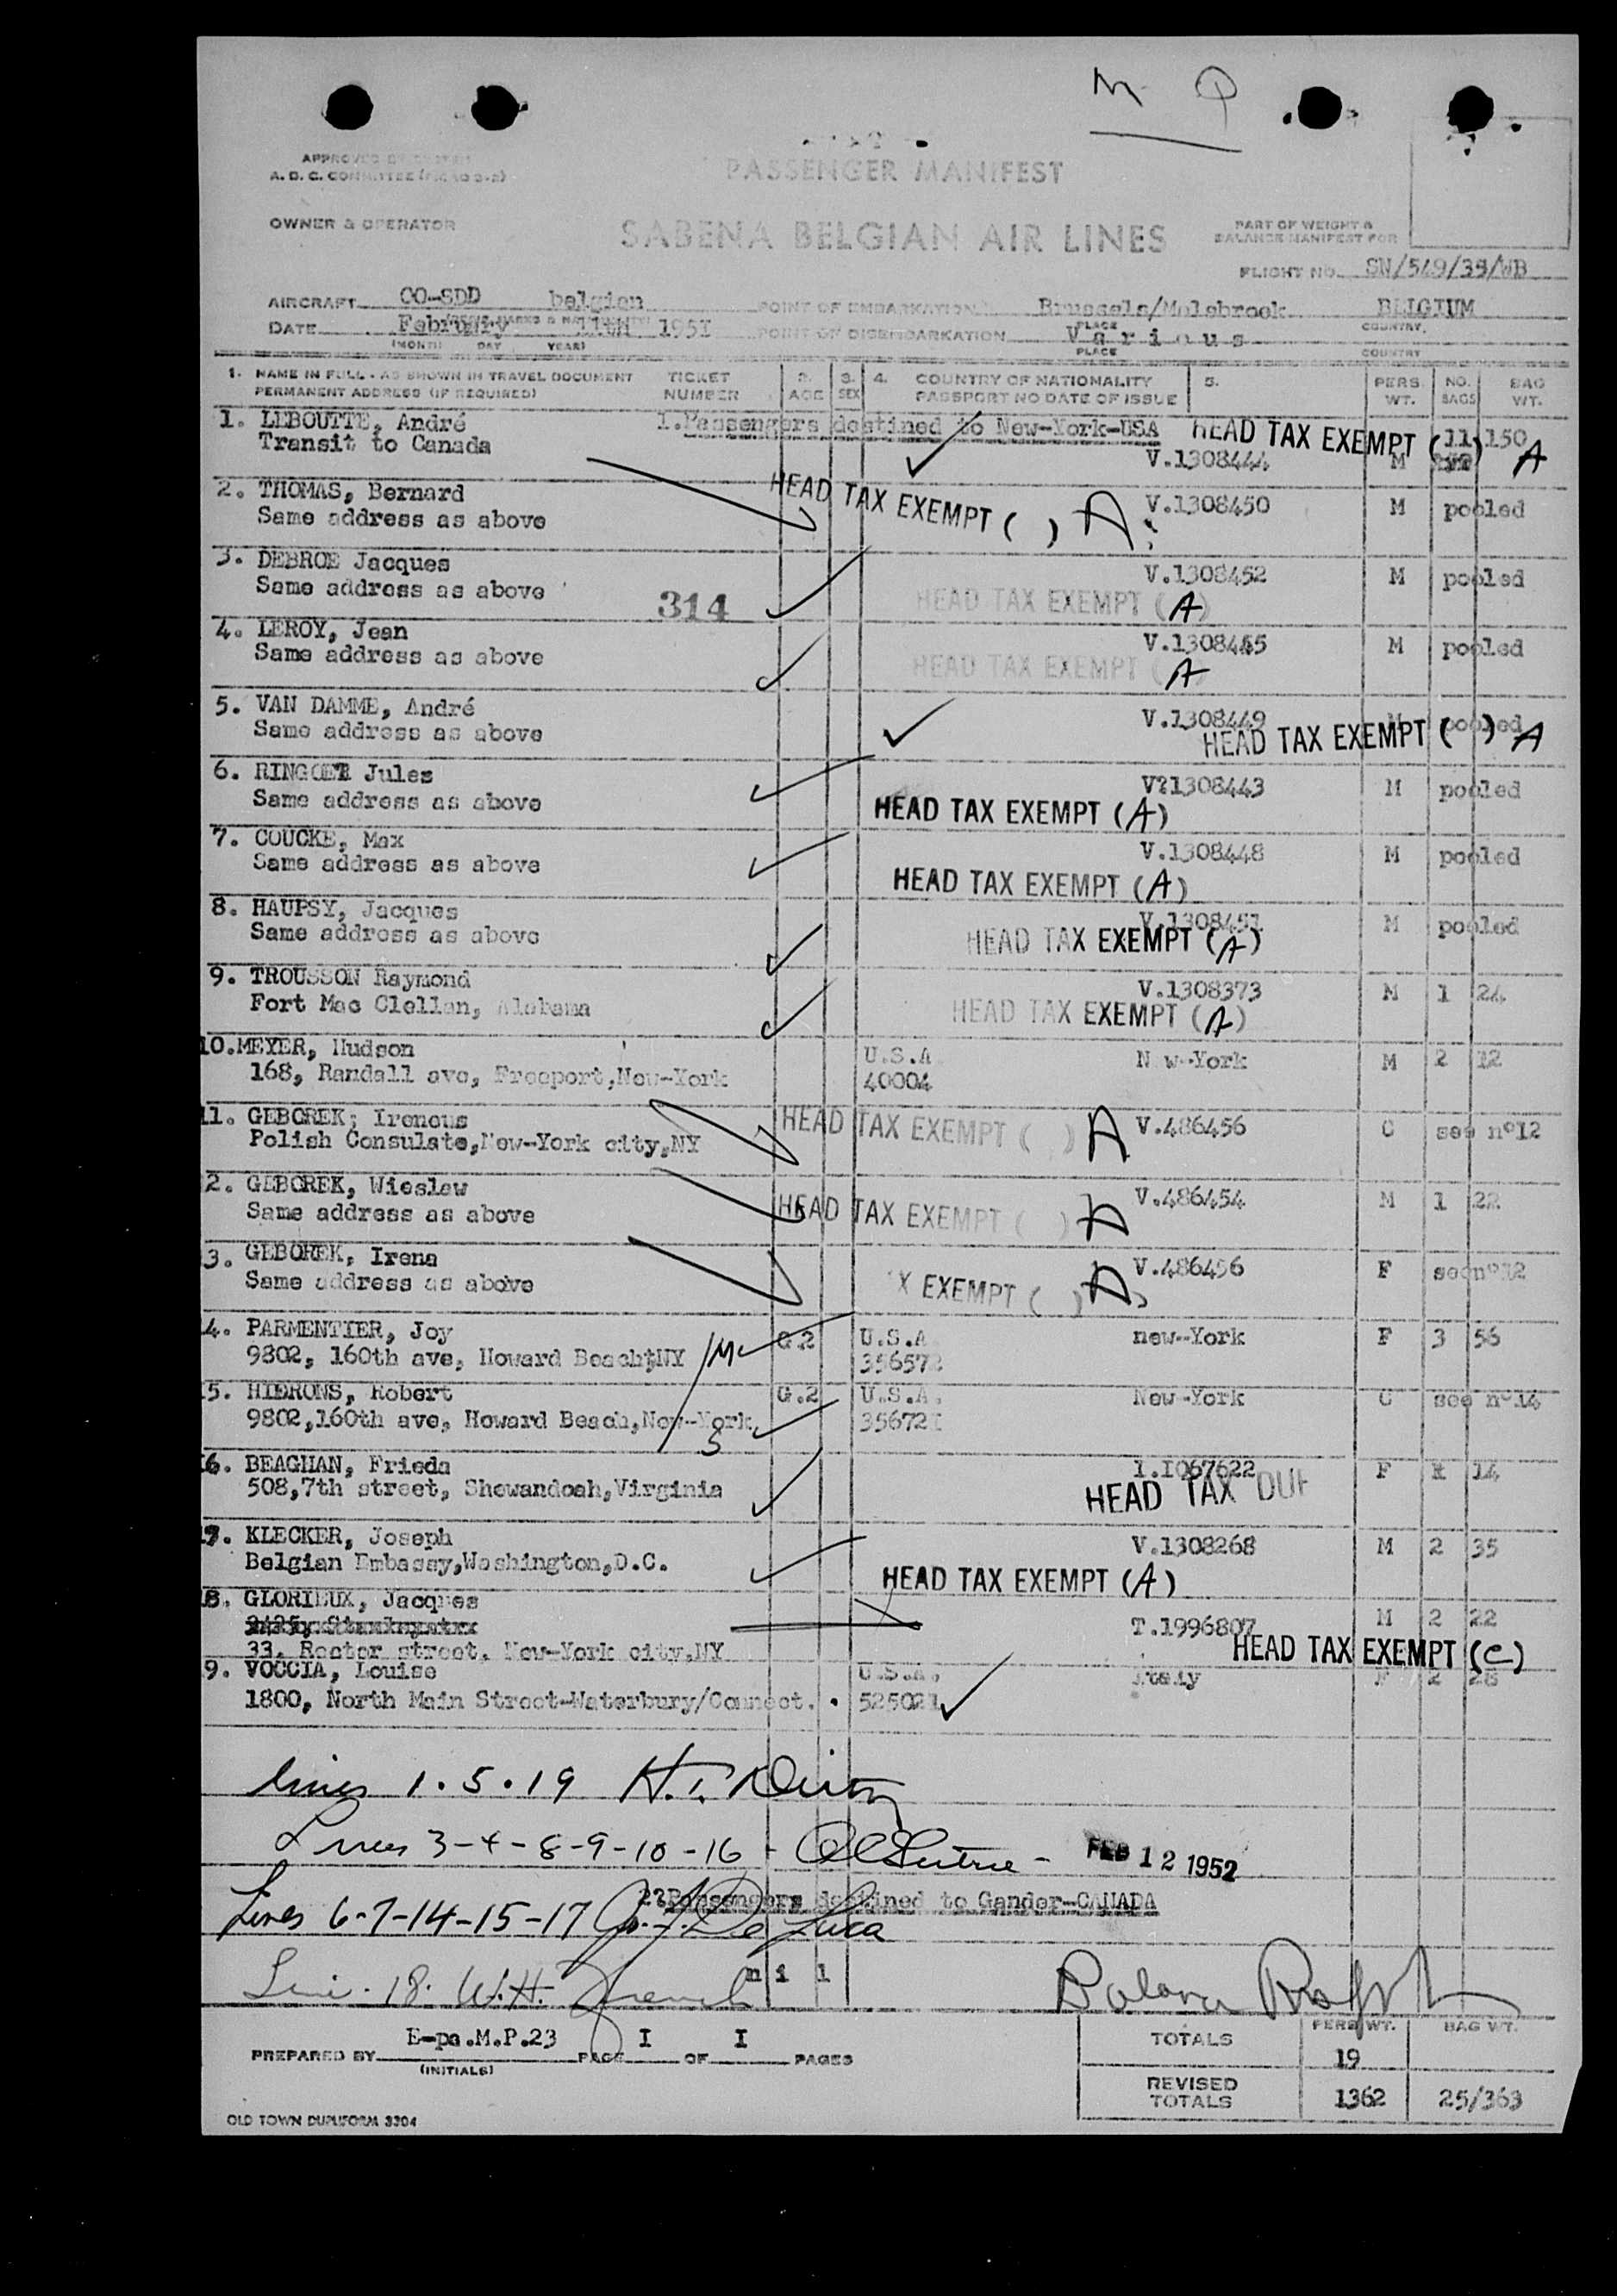 M P
PASSENGER MANIFEST
APPROVED BY
A. D. C. COMMITTEE
OWNER & OPERATOR
SABENA BELGIAN AIR LINES
PART OF WEIGHT &
BALANCE MANIFEST FOR
FLIGHT NO. SN/549/39/WB
AIRCRAFT OO-SDD belgien POINT OF EMBARKATION Brussels/Melsbroek BELGIUM
PLACE COUNTRY
DATE February 11th 195I POINT OF DISEMBARKATION V a r i o u s
(MONTH DAY YEAR) PLACE COUNTRY
1. NAME IN FULL - AS SHOWN IN TRAVEL DOCUMENT TICKET 2. 3. 4. COUNTRY OF NATIONALITY 5. PERS. NO. BAG
PERMANENT ADDRESS (IF REQUIRED) NUMBER AGE SEX PASSPORT NO DATE OF ISSUE WT. BAGS WT.
1. LEBOUTTE, André 1.Passengers destined to New-York-USA HEAD TAX EXEMPT ( ) 11 150 A
Transit to Canada V.1308444 M
2. THOMAS, Bernard HEAD TAX EXEMPT ( ) A V.1308450 M pooled
Same address as above
3. DEBROE Jacques V.1308452 M pooled
Same address as above 314 HEAD TAX EXEMPT (A)
4. LEROY, Jean V.1308445 M pooled
Same address as above HEAD TAX EXEMPT (A
5. VAN DAMME, André V.1308449 M pooled
Same address as above HEAD TAX EXEMPT ( ) A
6. RINGOET Jules V?1308443 M pooled
Same address as above HEAD TAX EXEMPT (A)
7. COUCKE, Max V.1308448 M pooled
Same address as above HEAD TAX EXEMPT (A)
8. HAUPSY, Jacques V.1308451 M pooled
Same address as above HEAD TAX EXEMPT (A)
9. TROUSSON Raymond V.1308373 M 1 24
Fort Mac Clellan, Alabama HEAD TAX EXEMPT (A)
10.MEYER, Hudson U.S.A N w-York M 2 32
168, Randall ave, Freeport,New-York 40004
11. GEBOREK; Ireneus HEAD TAX EXEMPT ( ) A V.486456 C see n°12
Polish Consulate,New-York city,NY
2. GEBOREK, Wieslaw V.486454 M 1 22
Same address as above HEAD TAX EXEMPT ( ) A
3. GEBOREK, Irena V.486456 F see n°12
Same address as above X EXEMPT ( ) A
4. PARMENTIER, Joy G.2 U.S.A. new-York F 3 56
9802, 160th ave, Howard Beach,NY M 356572
5. HIERONS, Robert G.2 U.S.A. New-York C see n°14
9802,160th ave, Howard Beach,New-York, S 35672I
6. BEAGHAN, Frieda 1.I067622 F 14
508,7th street, Shewandoah,Virginia HEAD TAX DUE
7. KLECKER, Joseph V.1308268 M 2 35
Belgian Embassy,Washington,D.C. HEAD TAX EXEMPT (A)
8. GLORIEUX, Jacques M 2 22
T.1996807
33, Rector street, New-York city,NY HEAD TAX EXEMPT (C)
9. VOCCIA, Louise U.S.A. Italy F 2 28
1800, North Main Street-Waterbury/Connect. 525021
Lines 1.5.19
Lines 3-4-8-9-10-16 - FEB 12 1952
2?Passengers destined to Gander-CANADA
Lines 6-7-14-15-17 G. J. De Luca
n i l
Line. 18. W.H. French
E-pa.M.P.23 I I
PREPARED BY PAGE OF PAGES
(INITIALS)
PERS WT. BAG WT.
TOTALS 19
REVISED TOTALS 1362 25/363
OLD TOWN DUPLIFORM 3304